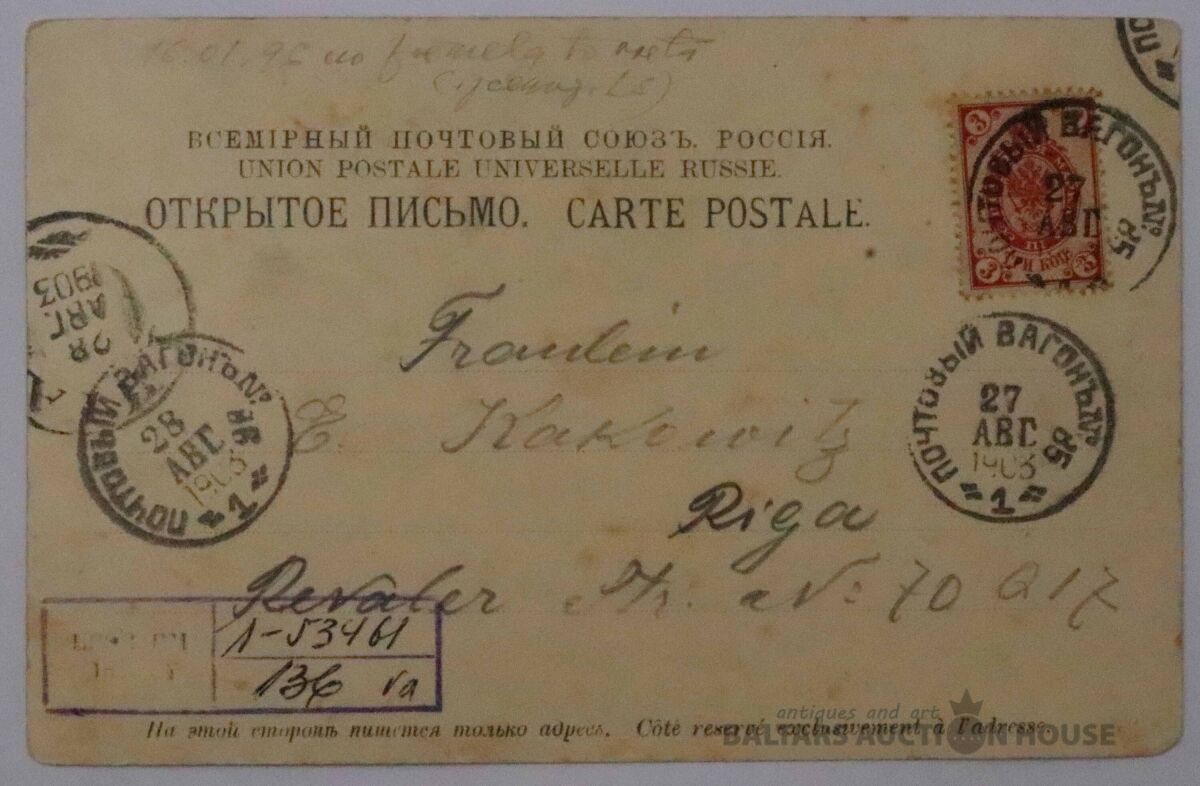 16.01.96 no
ВСЕМІРНЫЙ ПОЧТОВЫЙ СОЮЗЪ. РОССІЯ.
UNION POSTALE UNIVERSELLE RUSSIE.
ОТКРЫТОЕ ПИСЬМО. CARTE POSTALE.
3 3
3 3
ТРИ КОП.
ПОЧТОВЫЙ ВАГОНЪ № 85
27
АВГ
28
АВГ.
1903
ПОЧТОВЫЙ ВАГОНЪ № 85
27
АВГ
1903
"1"
ПОЧТОВЫЙ ВАГОНЪ №
28
АВГ
1903
"1"
Fraulein
E. Kakowitz
Riga
Revaler Str. N: 70 Q 17
1-53461
136 va
На этой сторонѣ пишется только адресъ. Côté reservé exclusivement à l'adresse.
antiques and art
BALTARS AUCTION HOUSE